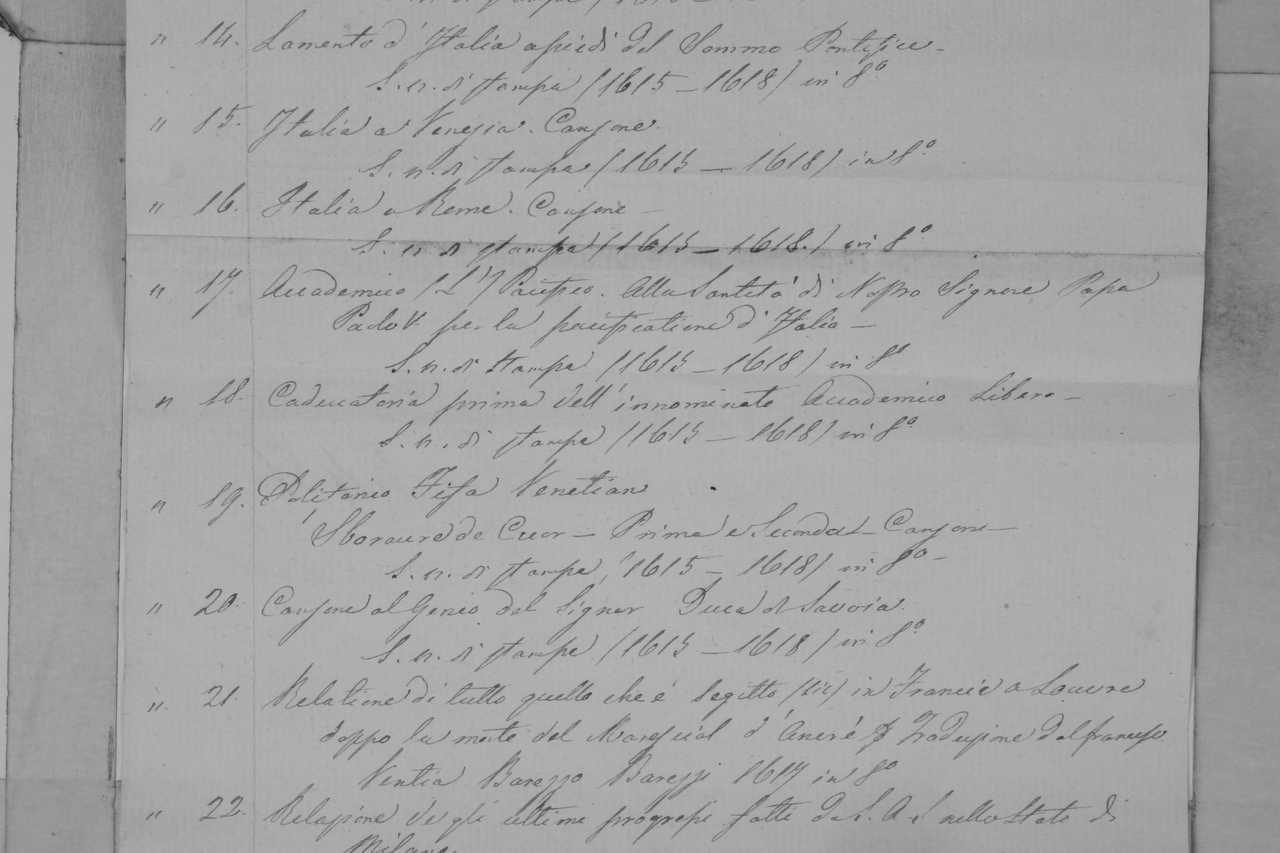 S. n. di stampa (1615
" 14. Lamento d'Italia a piedi del Sommo Pontefice -
S. n. di stampa (1615 - 1618) in 8º
" 15. Italia a Venezia. Canzone.
S. n. di stampa (1615 - 1618) in 8º
" 16. Italia a Rome. Canzone -
S. n. di stampa (1615 - 1618.) in 8º
" 17. Accademico (L') Alla Santità di Nostro Signore Papa
Paolo V per la pacificatione d'Italia -
S. n. di stampa (1615 - 1618) in 8º
" 18. prima dell'innominato Accademico Libero -
S. n. di stampa (1615 - 1618) in 8º
" 19. Venetian
de Cuor - Prima e Seconda - Canzone -
S. n. di stampa (1615 - 1618) in 8º -
" 20. Canzone al Genio del Signor Duca di Savoia.
S. n. di stampa (1615 - 1618) in 8º
" 21. Relatione di tutto quello che é segitto (sic) in Francia a Louvre
doppo la morte del Marescial d'Ancré Traduzione dal francese
Barezzo Barezzi 1617 in 8º
" 22. Relazione degli ultimi progressi fatti da S. A. S. nello Stato di
Milano